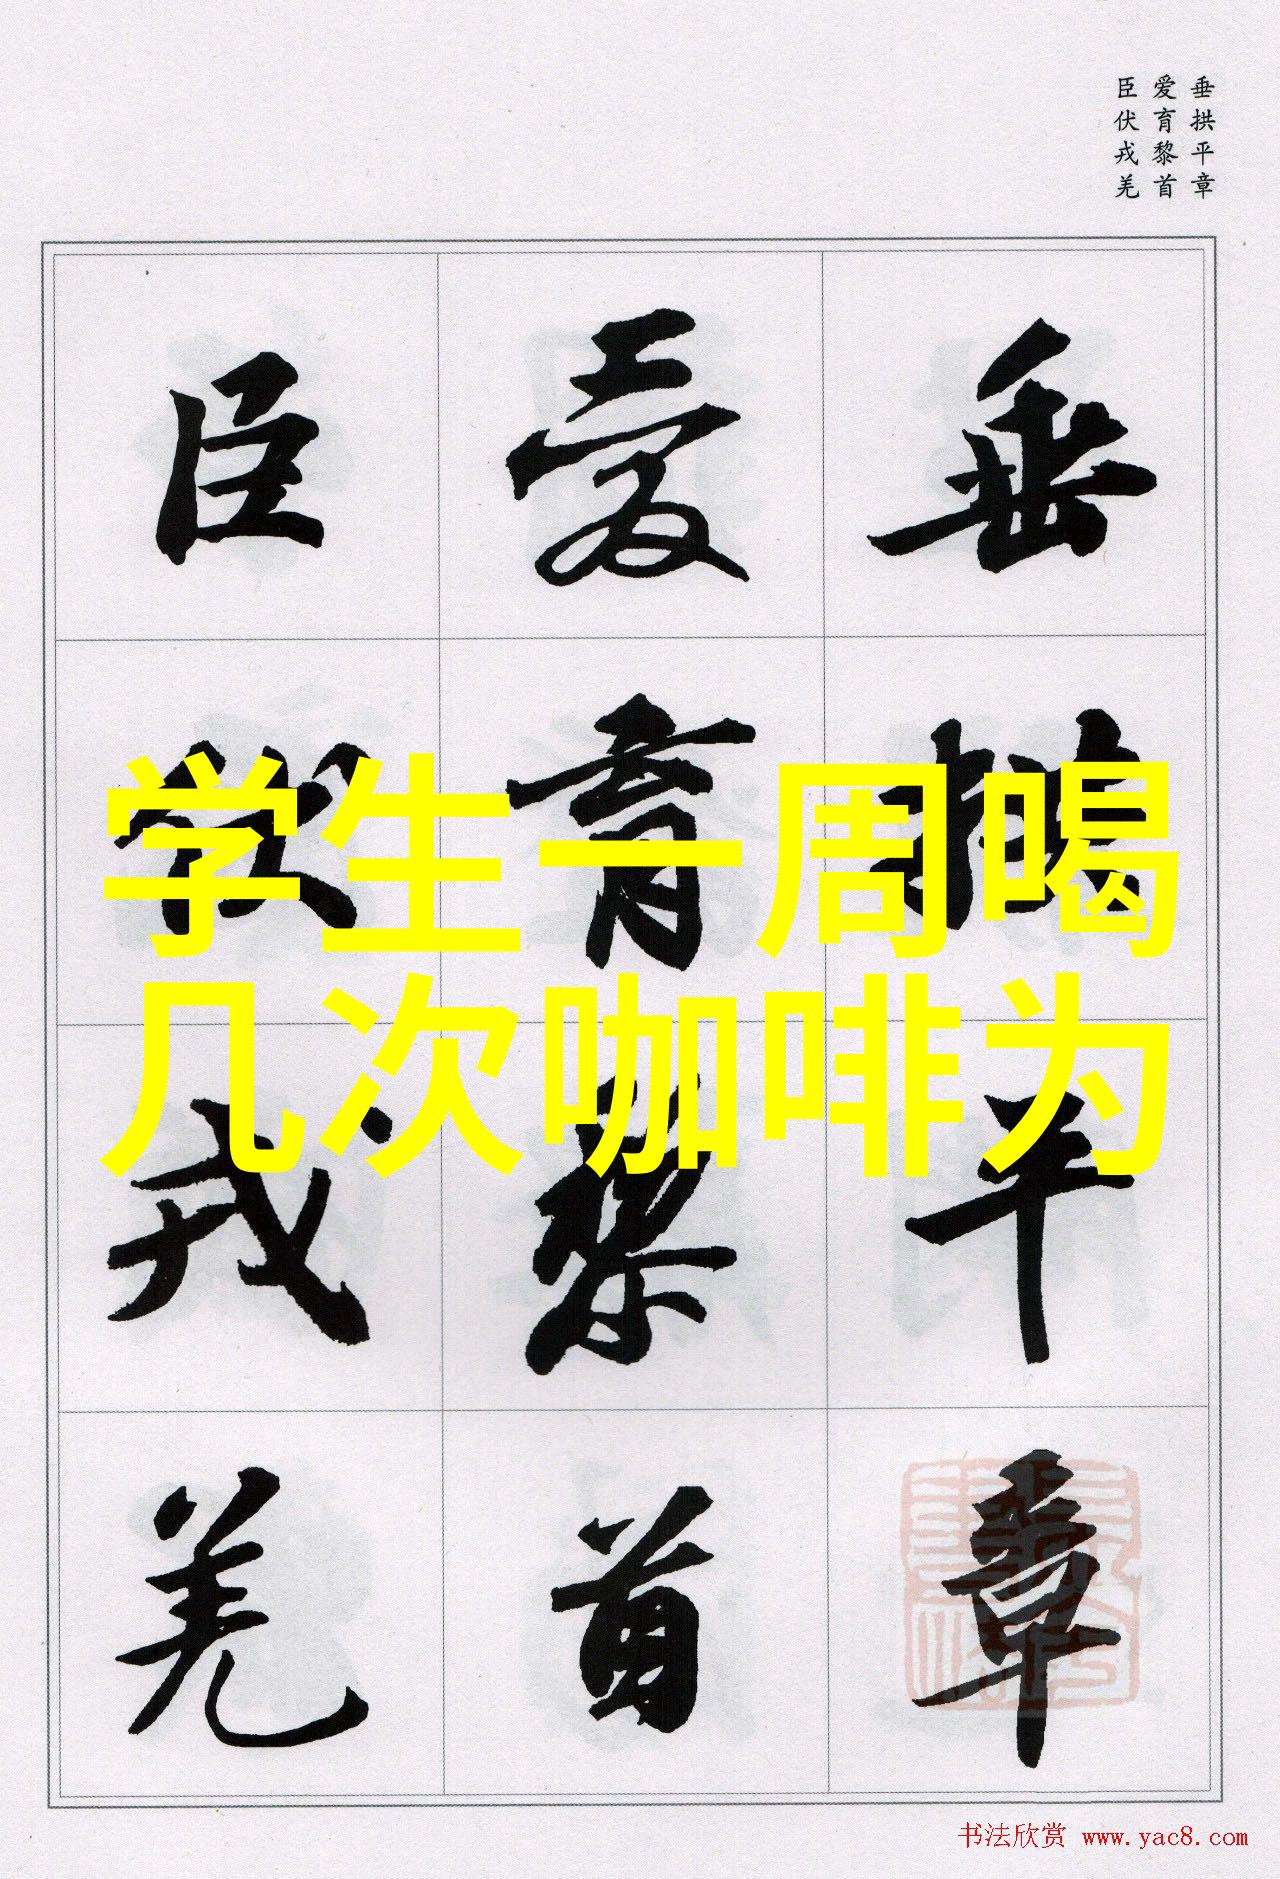 垂拱平章
爱育黎首
臣伏戎羌
垂拱平章
爱育黎首
臣伏戎羌
学生一周喝
几次咖啡为
书法欣赏 www.yac8.com